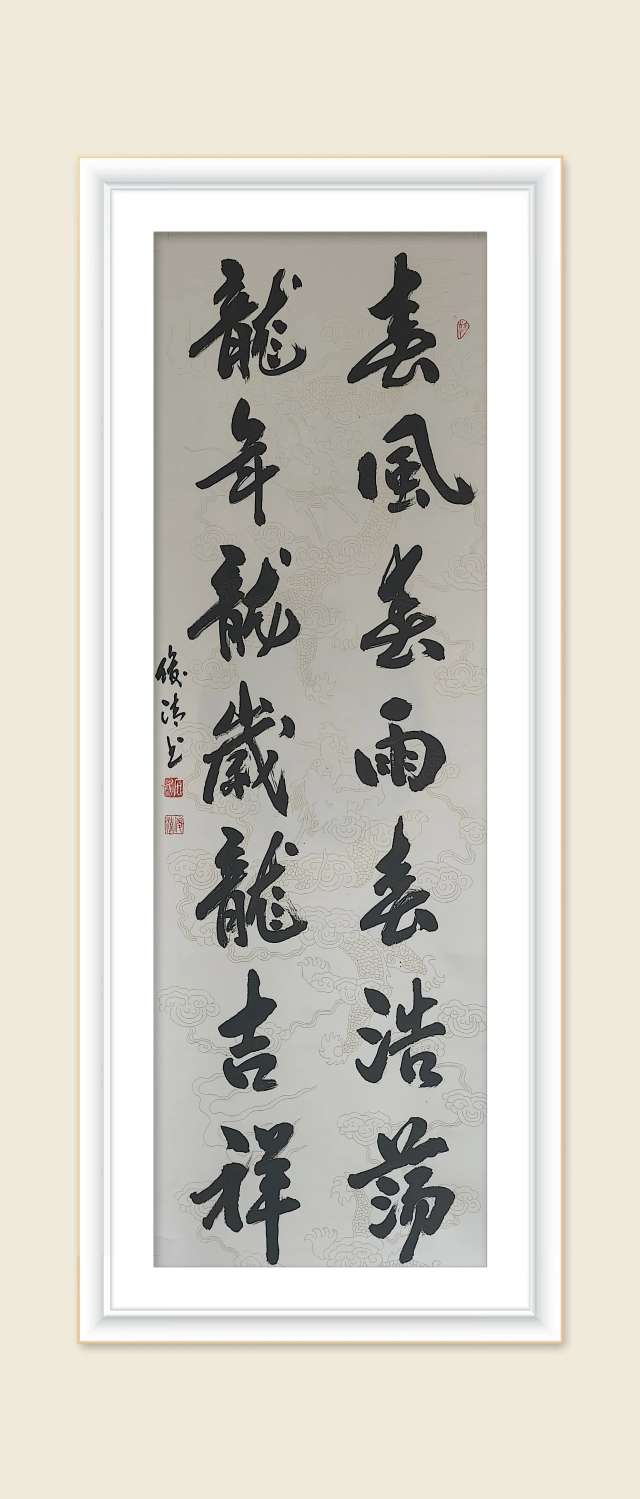 春風春雨春浩荡
龍年龍歲龍吉祥
俊清书